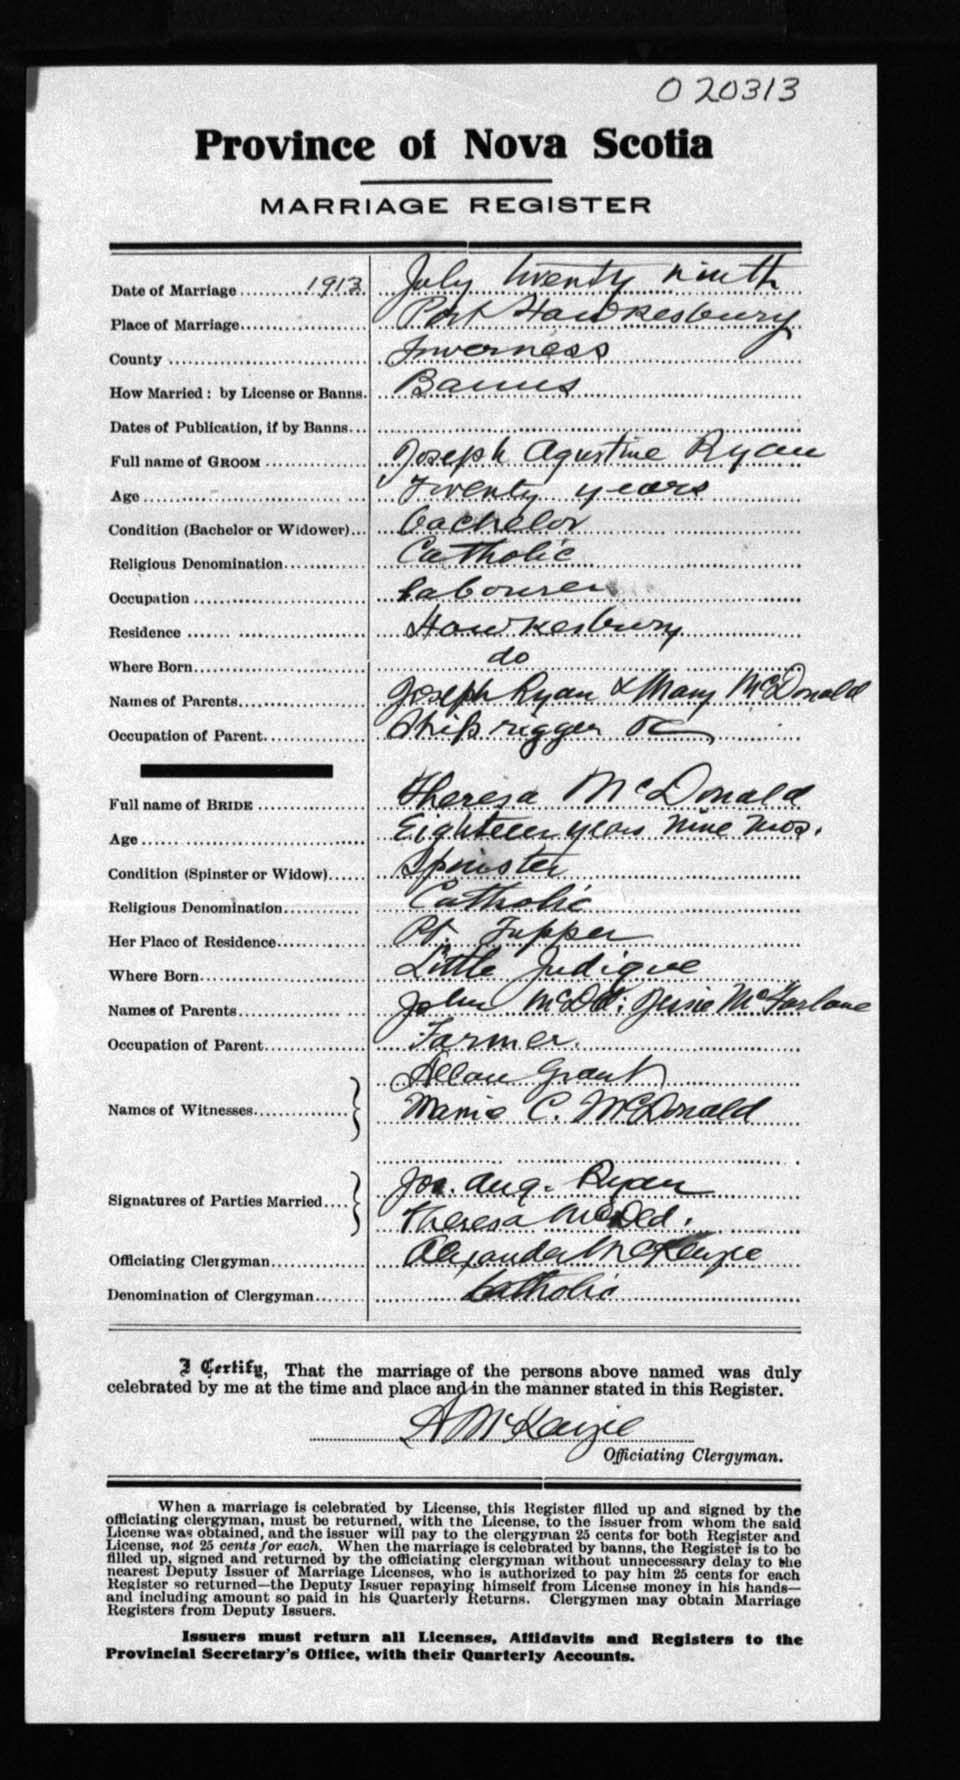 O 20313
Province of Nova Scotia
MARRIAGE REGISTER
Date of Marriage 1913 July twenty ninth
Place of Marriage Port Hawkesbury
County Inverness
How Married: by License or Banns. Banns
Dates of Publication, if by Banns
Full name of GROOM Joseph Agustine Ryan
Age Twenty years
Condition (Bachelor or Widower) bachelor
Religious Denomination Catholic
Occupation labourer
Residence Hawkesbury
Where Born do
Names of Parents Joseph Ryan & Mary McDonald
Occupation of Parent Ship rigger
Full name of BRIDE Theresa McDonald
Age Eighteen years nine mos.
Condition (Spinster or Widow) Spinster
Religious Denomination Catholic
Her Place of Residence Pt. Tupper
Where Born Little Judique
Names of Parents John McDd. Jessie McFarlane
Occupation of Parent Farmer.
Allan Grant
Names of Witnesses Mamie C. McDonald
Signatures of Parties Married Jos. Aug. Ryan
Theresa McDld.
Officiating Clergyman Alexander McKenzie
Denomination of Clergyman Catholic
I Certify, That the marriage of the persons above named was duly
celebrated by me at the time and place and in the manner stated in this Register.
A McKenzie
Officiating Clergyman.
When a marriage is celebrated by License, this Register filled up and signed by the
officiating clergyman, must be returned, with the License, to the issuer from whom the said
License was obtained, and the issuer will pay to the clergyman 25 cents for both Register and
License, not 25 cents for each. When the marriage is celebrated by banns, the Register is to be
filled up, signed and returned by the officiating clergyman without unnecessary delay to the
nearest Deputy Issuer of Marriage Licenses, who is authorized to pay him 25 cents for each
Register so returned—the Deputy Issuer repaying himself from License money in his hands—
and including amount so paid in his Quarterly Returns. Clergymen may obtain Marriage
Registers from Deputy Issuers.
Issuers must return all Licenses, Affidavits and Registers to the
Provincial Secretary's Office, with their Quarterly Accounts.